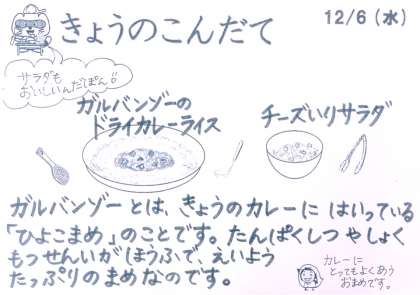 きょうのこんだて
12/6 (水)
サラダも
おいしいんだぽん!!
ガルバンゾーの
ドライカレーライス
チーズいりサラダ
ガルバンゾーとは、きょうのカレーに はいっている
「ひよこまめ」のことです。たんぱくしつ や しょく
もつせんいが ほうふで、えいよう
たっぷりのまめなのです。
カレーに
とってもよくあう
おまめです。